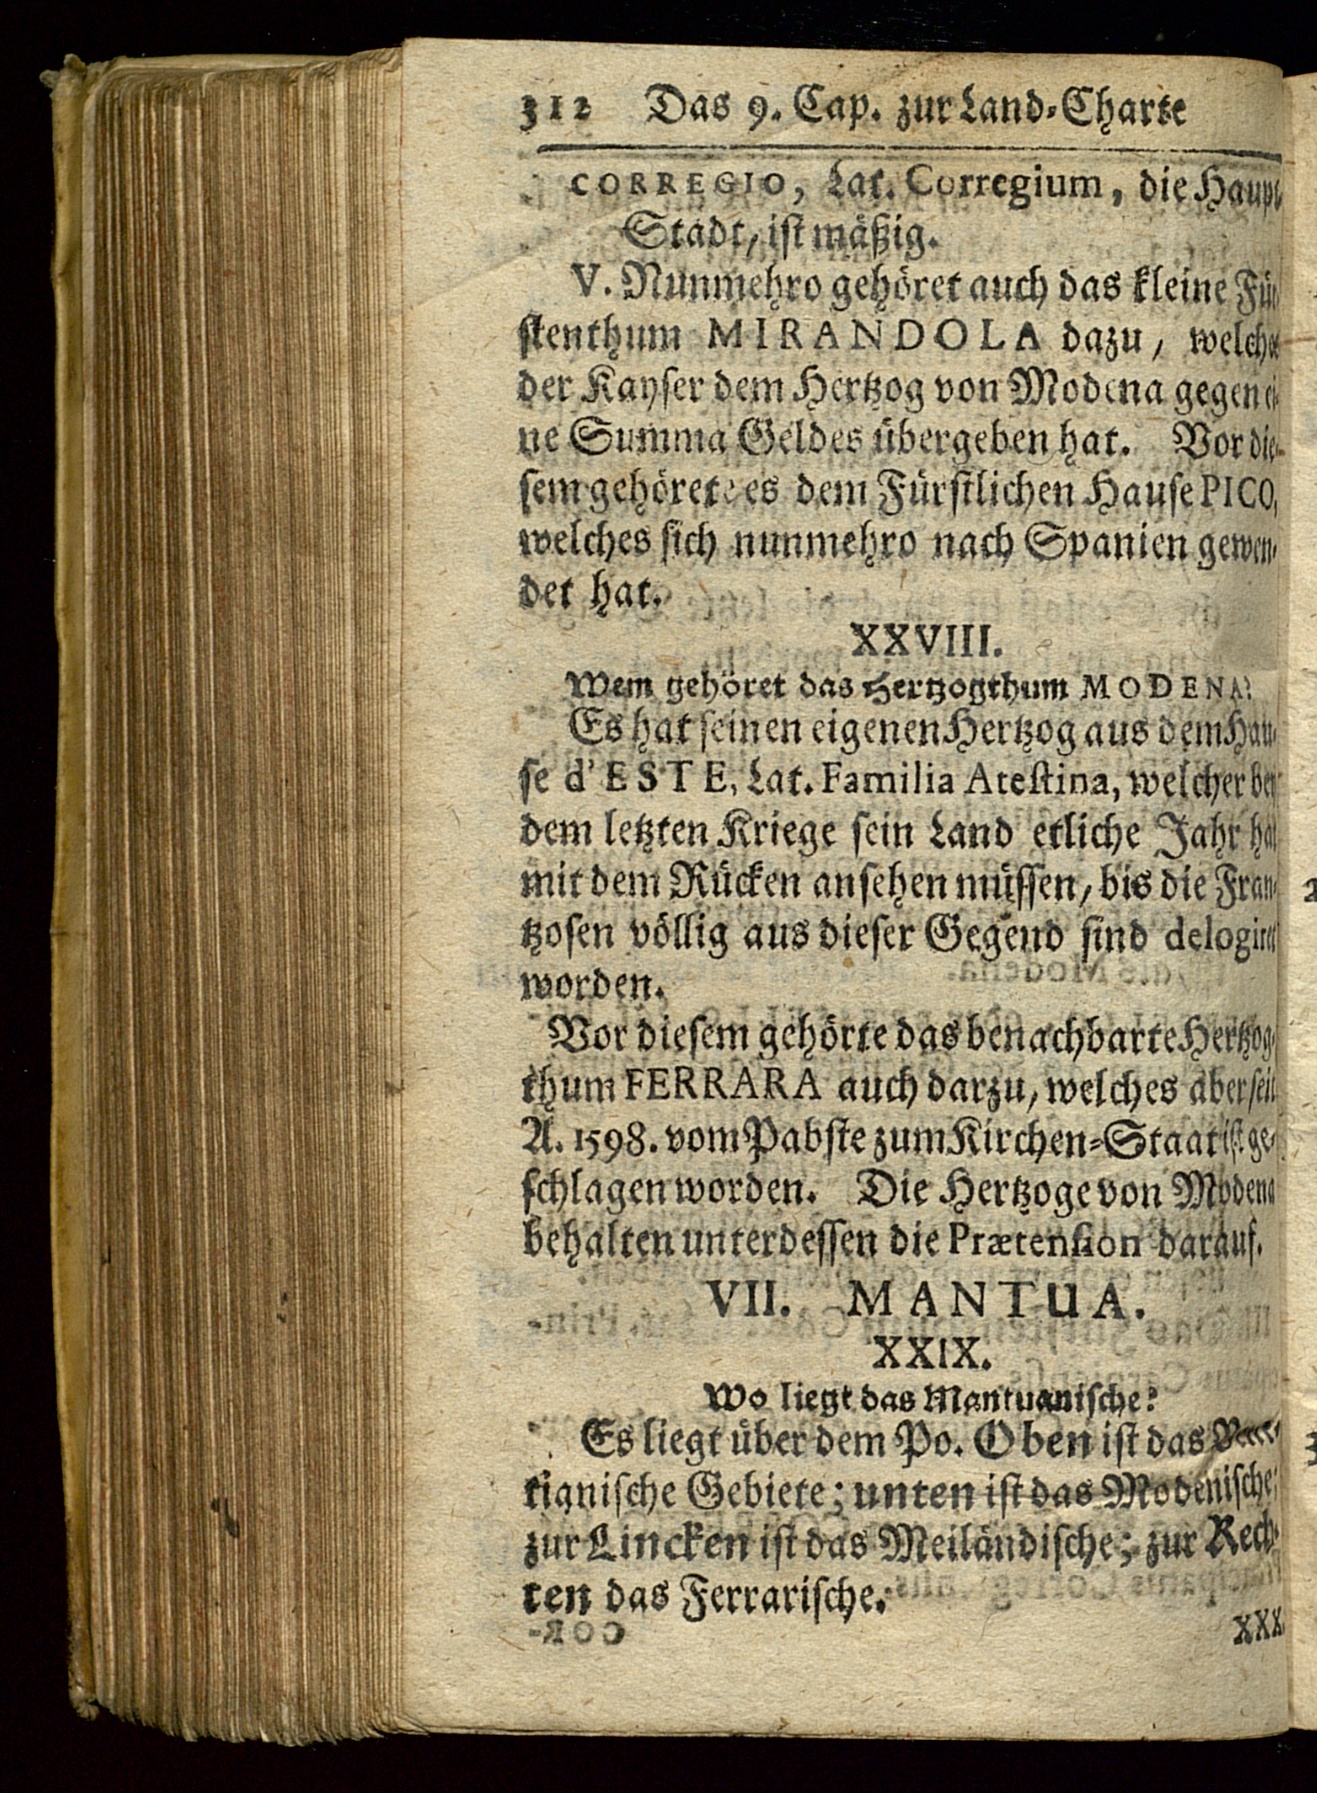 312 Das 9. Cap. zur Land-Charte
CORREGIO, Lat. Corregium, die Haupt-
Stadt, ist mäßig.
V. Nunmehro gehöret auch das kleine Für-
stenthum MIRANDOLA dazu, welches
der Kayser dem Hertzog von Modena gegen ei-
ne Summa Geldes übergeben hat. Vor die-
sem gehörete es dem Fürstlichen Hause PICO,
welches sich nunmehro nach Spanien gewen-
det hat.
XXVIII.
Wem gehöret das Hertzogthum MODENA?
Es hat seinen eigenen Hertzog aus dem Hau-
se d'ESTE, Lat. Familia Atestina, welcher bey
dem letzten Kriege sein Land etliche Jahr hat
mit dem Rücken ansehen müssen, bis die Fran-
tzosen völlig aus dieser Gegend sind delogiret
worden.
Vor diesem gehörte das benachbarte Hertzog-
thum FERRARA auch darzu, welches aber seit
A. 1598. vom Pabste zum Kirchen-Staat ist ge-
schlagen worden. Die Hertzoge von Modena
behalten unterdessen die Prætension darauf.
VII. MANTUA.
XXIX.
Wo liegt das Mantuanische?
Es liegt über dem Po. Oben ist das
tianische Gebiete; unten ist das Modenische;
zur Lincken ist das Meiländische; zur Rech-
ten das Ferrarische.
XXX.